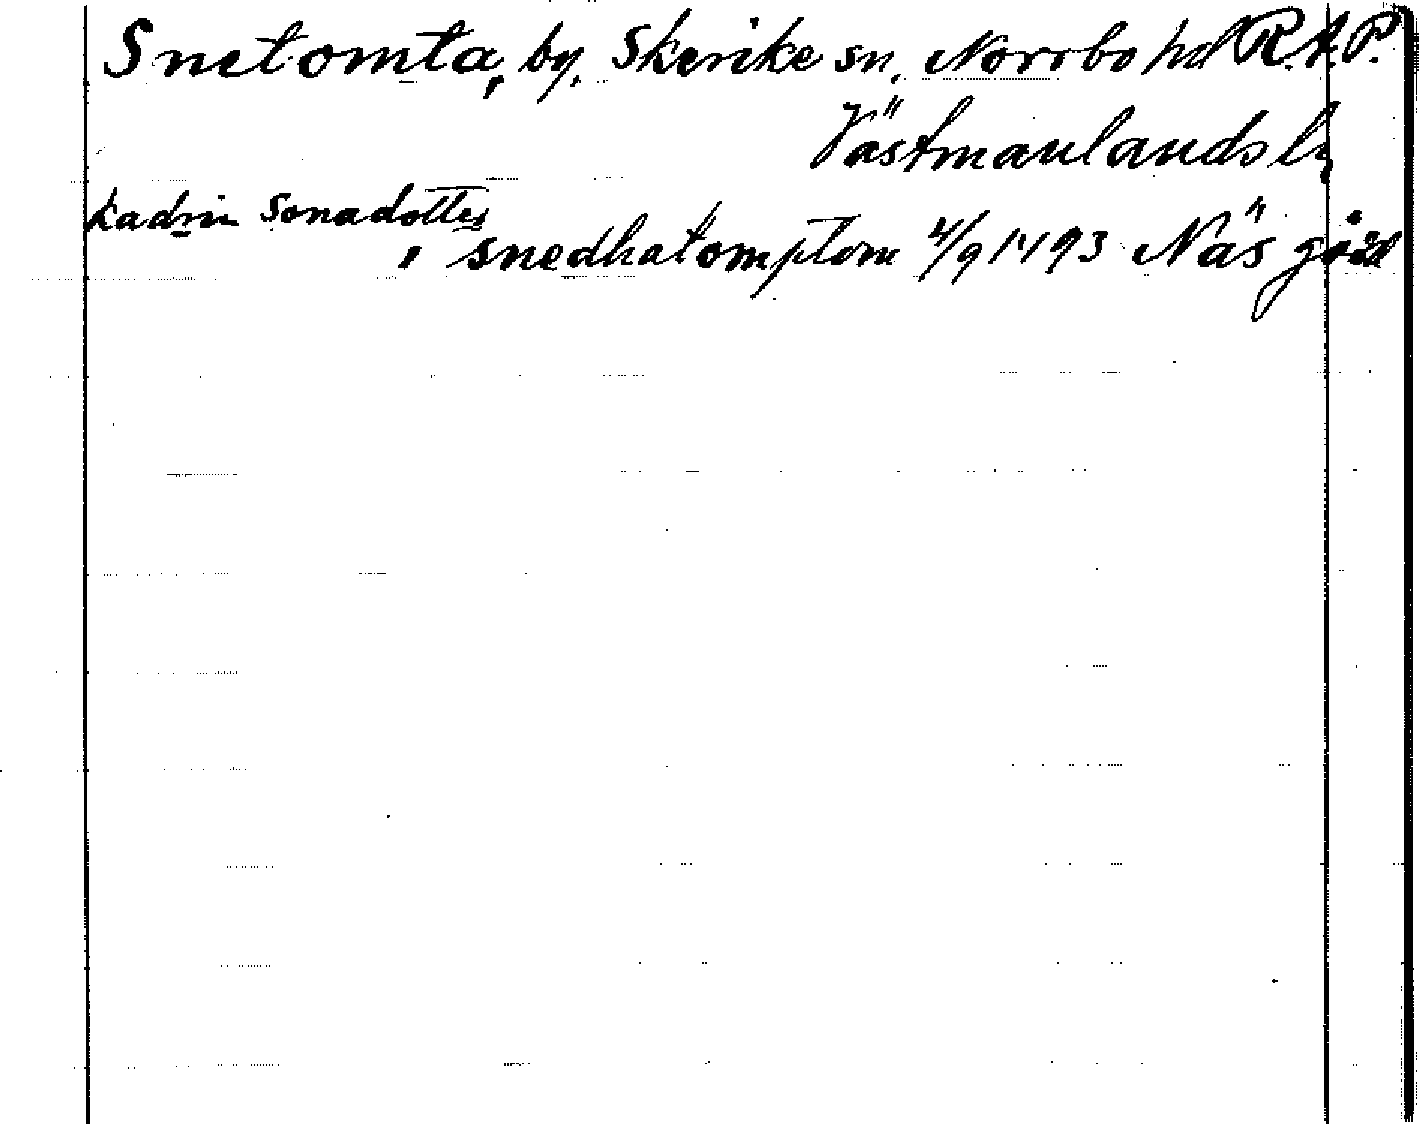 Snetomta, by, Skerike sn, Norrbo hd R.A.P.
Västmanlands l.
kadrin sonadotter
, snedhatomptom 4/9 1493 Näs gård